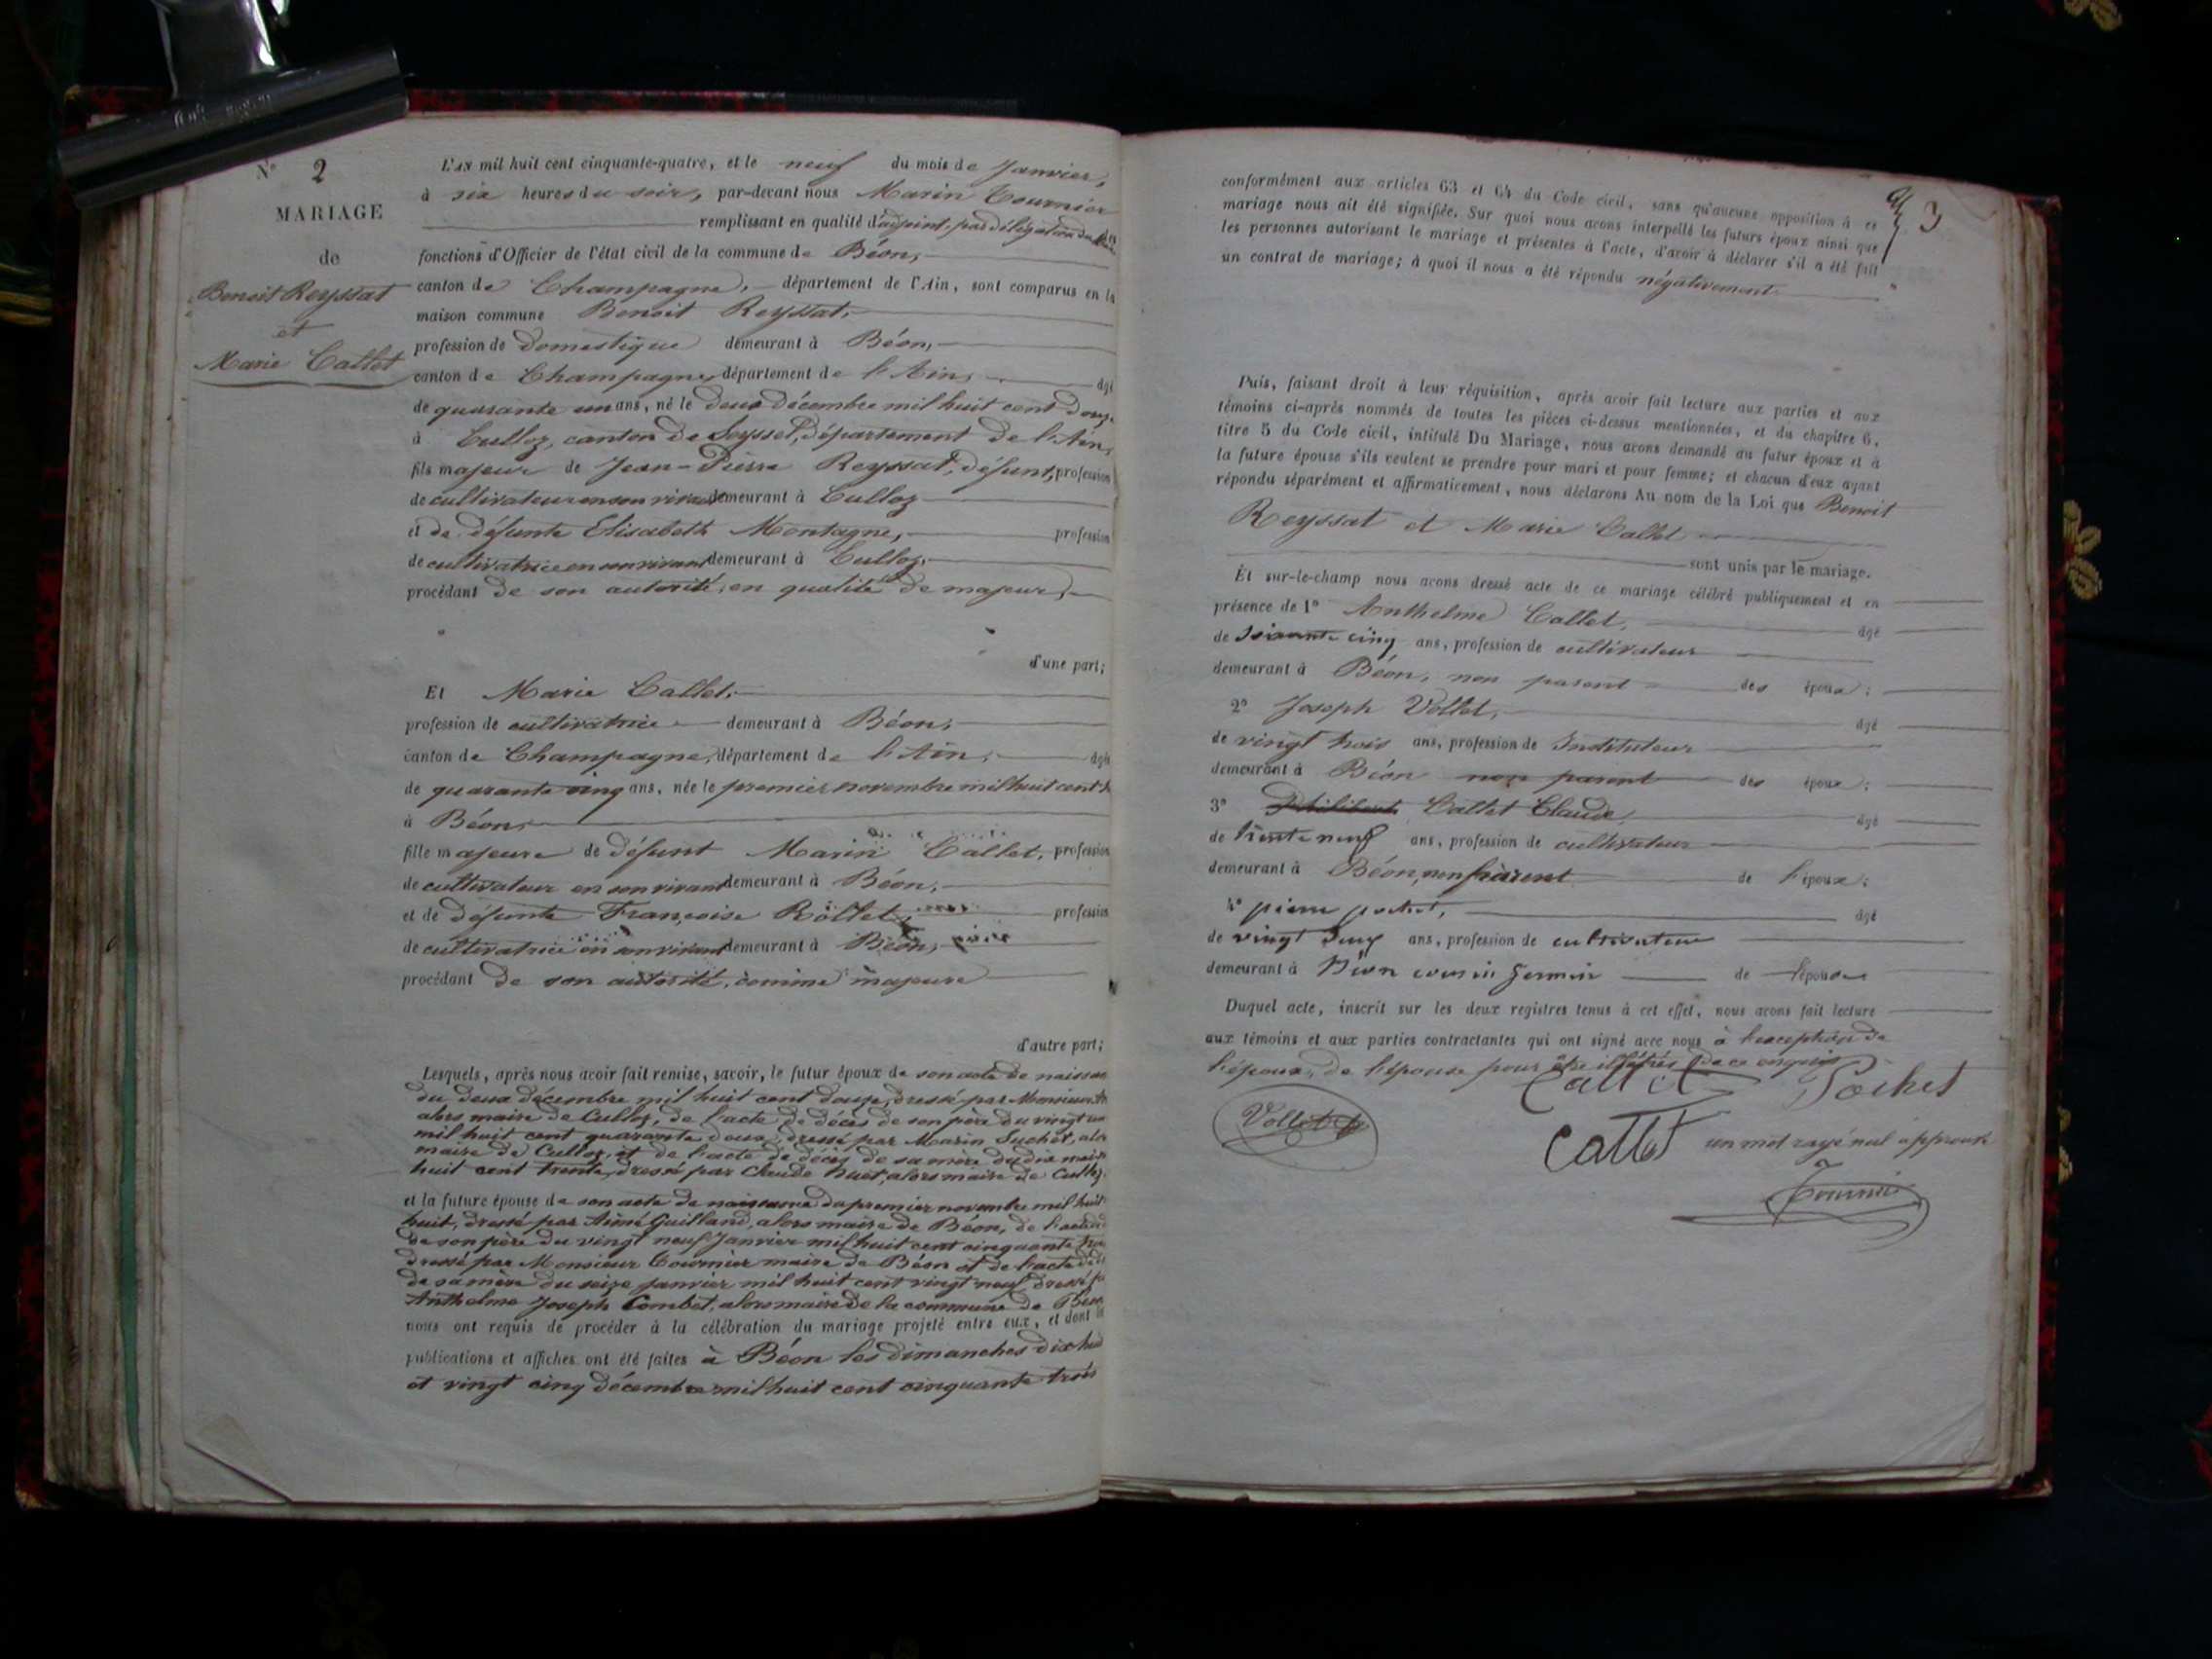 N° 2
MARIAGE
de
Benoit Reyssat
et
Marie Callet
L'AN mil huit cent cinquante-quatre, et le neuf du mois de Janvier,
à six heures du soir, par-devant nous Marin Tournier
remplissant en qualité d'adjoint, par délégation du les
fonctions d'Officier de l'état civil de la commune de Béon,
canton de Champagne, département de l'Ain, sont comparus en la
maison commune Benoit Reyssat,
profession de domestique demeurant à Béon,
canton de Champagne, département de l'Ain, âgé
de quarante un ans, né le deux décembre mil huit cent douze
à Culloz, canton de Seyssel, département de l'Ain,
fils majeur de Jean-Pierre Reyssat, défunt, profession
de cultivateur en son vivant demeurant à Culloz
et de défunte Elisabeth Montagne, profession
de cultivatrice en son vivant demeurant à Culloz,
procédant de son autorité, en qualité de majeur,
d'une part;
Et Marie Callet,
profession de cultivatrice demeurant à Béon,
canton de Champagne, département de l'Ain, âgée
de quarante cinq ans, née le premier novembre mil huit cent
à Béon,
fille majeure de défunt Marin Callet, profession
de cultivateur en son vivant demeurant à Béon,
et de défunte Françoise Rollet, profession
de cultivatrice en son vivant demeurant à Béon,
procédant de son autorité, comme majeure
d'autre part;
Lesquels, après nous avoir fait remise, savoir, le futur époux de son acte de naissance
du deux décembre mil huit cent douze, dressé par Monsieur
alors maire de Culloz, de l'acte de décès de son père du vingt un
mil huit cent quarante deux, dressé par Marin Suchet, alors
maire de Culloz, et de l'acte de décès de sa mère du dix mars
huit cent trente, dressé par Claude Huet, alors maire de Culloz,
et la future épouse de son acte de naissance du premier novembre mil huit
huit, dressé par Aimé Guilland, alors maire de Béon, de l'acte de
de son père du vingt neuf Janvier mil huit cent cinquante trois
dressé par Monsieur Tournier maire de Béon et de l'acte de
de sa mère du seize janvier mil huit cent vingt neuf, dressé
Anthelme Joseph Combet, alors maire de la commune de Béon
nous ont requis de procéder à la célébration du mariage projeté entre eux, et dont les
publications et affiches ont été faites à Béon les dimanches dix huit
et vingt cinq décembre mil huit cent cinquante trois
3
conformément aux articles 63 et 64 du Code civil, sans qu'aucune opposition à ce
mariage nous ait été signifiée. Sur quoi nous avons interpellé les futurs époux ainsi que
les personnes autorisant le mariage et présentes à l'acte, d'avoir à déclarer s'il a été fait
un contrat de mariage; à quoi il nous a été répondu négativement.
Puis, faisant droit à leur réquisition, après avoir fait lecture aux parties et aux
témoins ci-après nommés de toutes les pièces ci-dessus mentionnées, et du chapitre 6,
titre 5 du Code civil, intitulé Du Mariage, nous avons demandé au futur époux et à
la future épouse s'ils veulent se prendre pour mari et pour femme; et chacun d'eux ayant
répondu séparément et affirmativement, nous déclarons Au nom de la Loi que Benoit
Reyssat et Marie Callet
sont unis par le mariage.
Et sur-le-champ nous avons dressé acte de ce mariage célébré publiquement et en
présence de 1° Anthelme Callet, âgé
de soixante cinq ans, profession de cultivateur
demeurant à Béon, non parent des époux;
2° Joseph Vollet, âgé
de vingt trois ans, profession de Instituteur
demeurant à Béon non parent des époux;
3° Philibert Callet Claude, âgé
de trente neuf ans, profession de cultivateur
demeurant à Béon, non parent de l'époux;
4° pierre pochet, âgé
de vingt deux ans, profession de cultivateur
demeurant à Béon cousin germain de l'épouse
Duquel acte, inscrit sur les deux registres tenus à cet effet, nous avons fait lecture
aux témoins et aux parties contractantes qui ont signé avec nous à l'exception de
l'époux, de l'épouse pour être illétrés de ce enquis
Callet Pochet
Vollet
Callet un mot rayé nul approuvé
Tournier